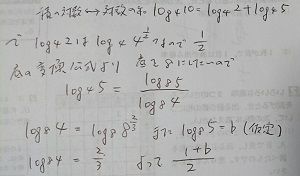 積の対数↔対数の和 log₄10 = log₄2 + log₄5
で log₄2は log₄4^{1/2} なので 1/2
底の変換公式より 底を8にしたいので
log₄5 = log₈5 / log₈4
log₈4 = log₈8^{2/3} また log₈5 = b (仮定)
log₈4 = 2/3 よって (1+b)/2